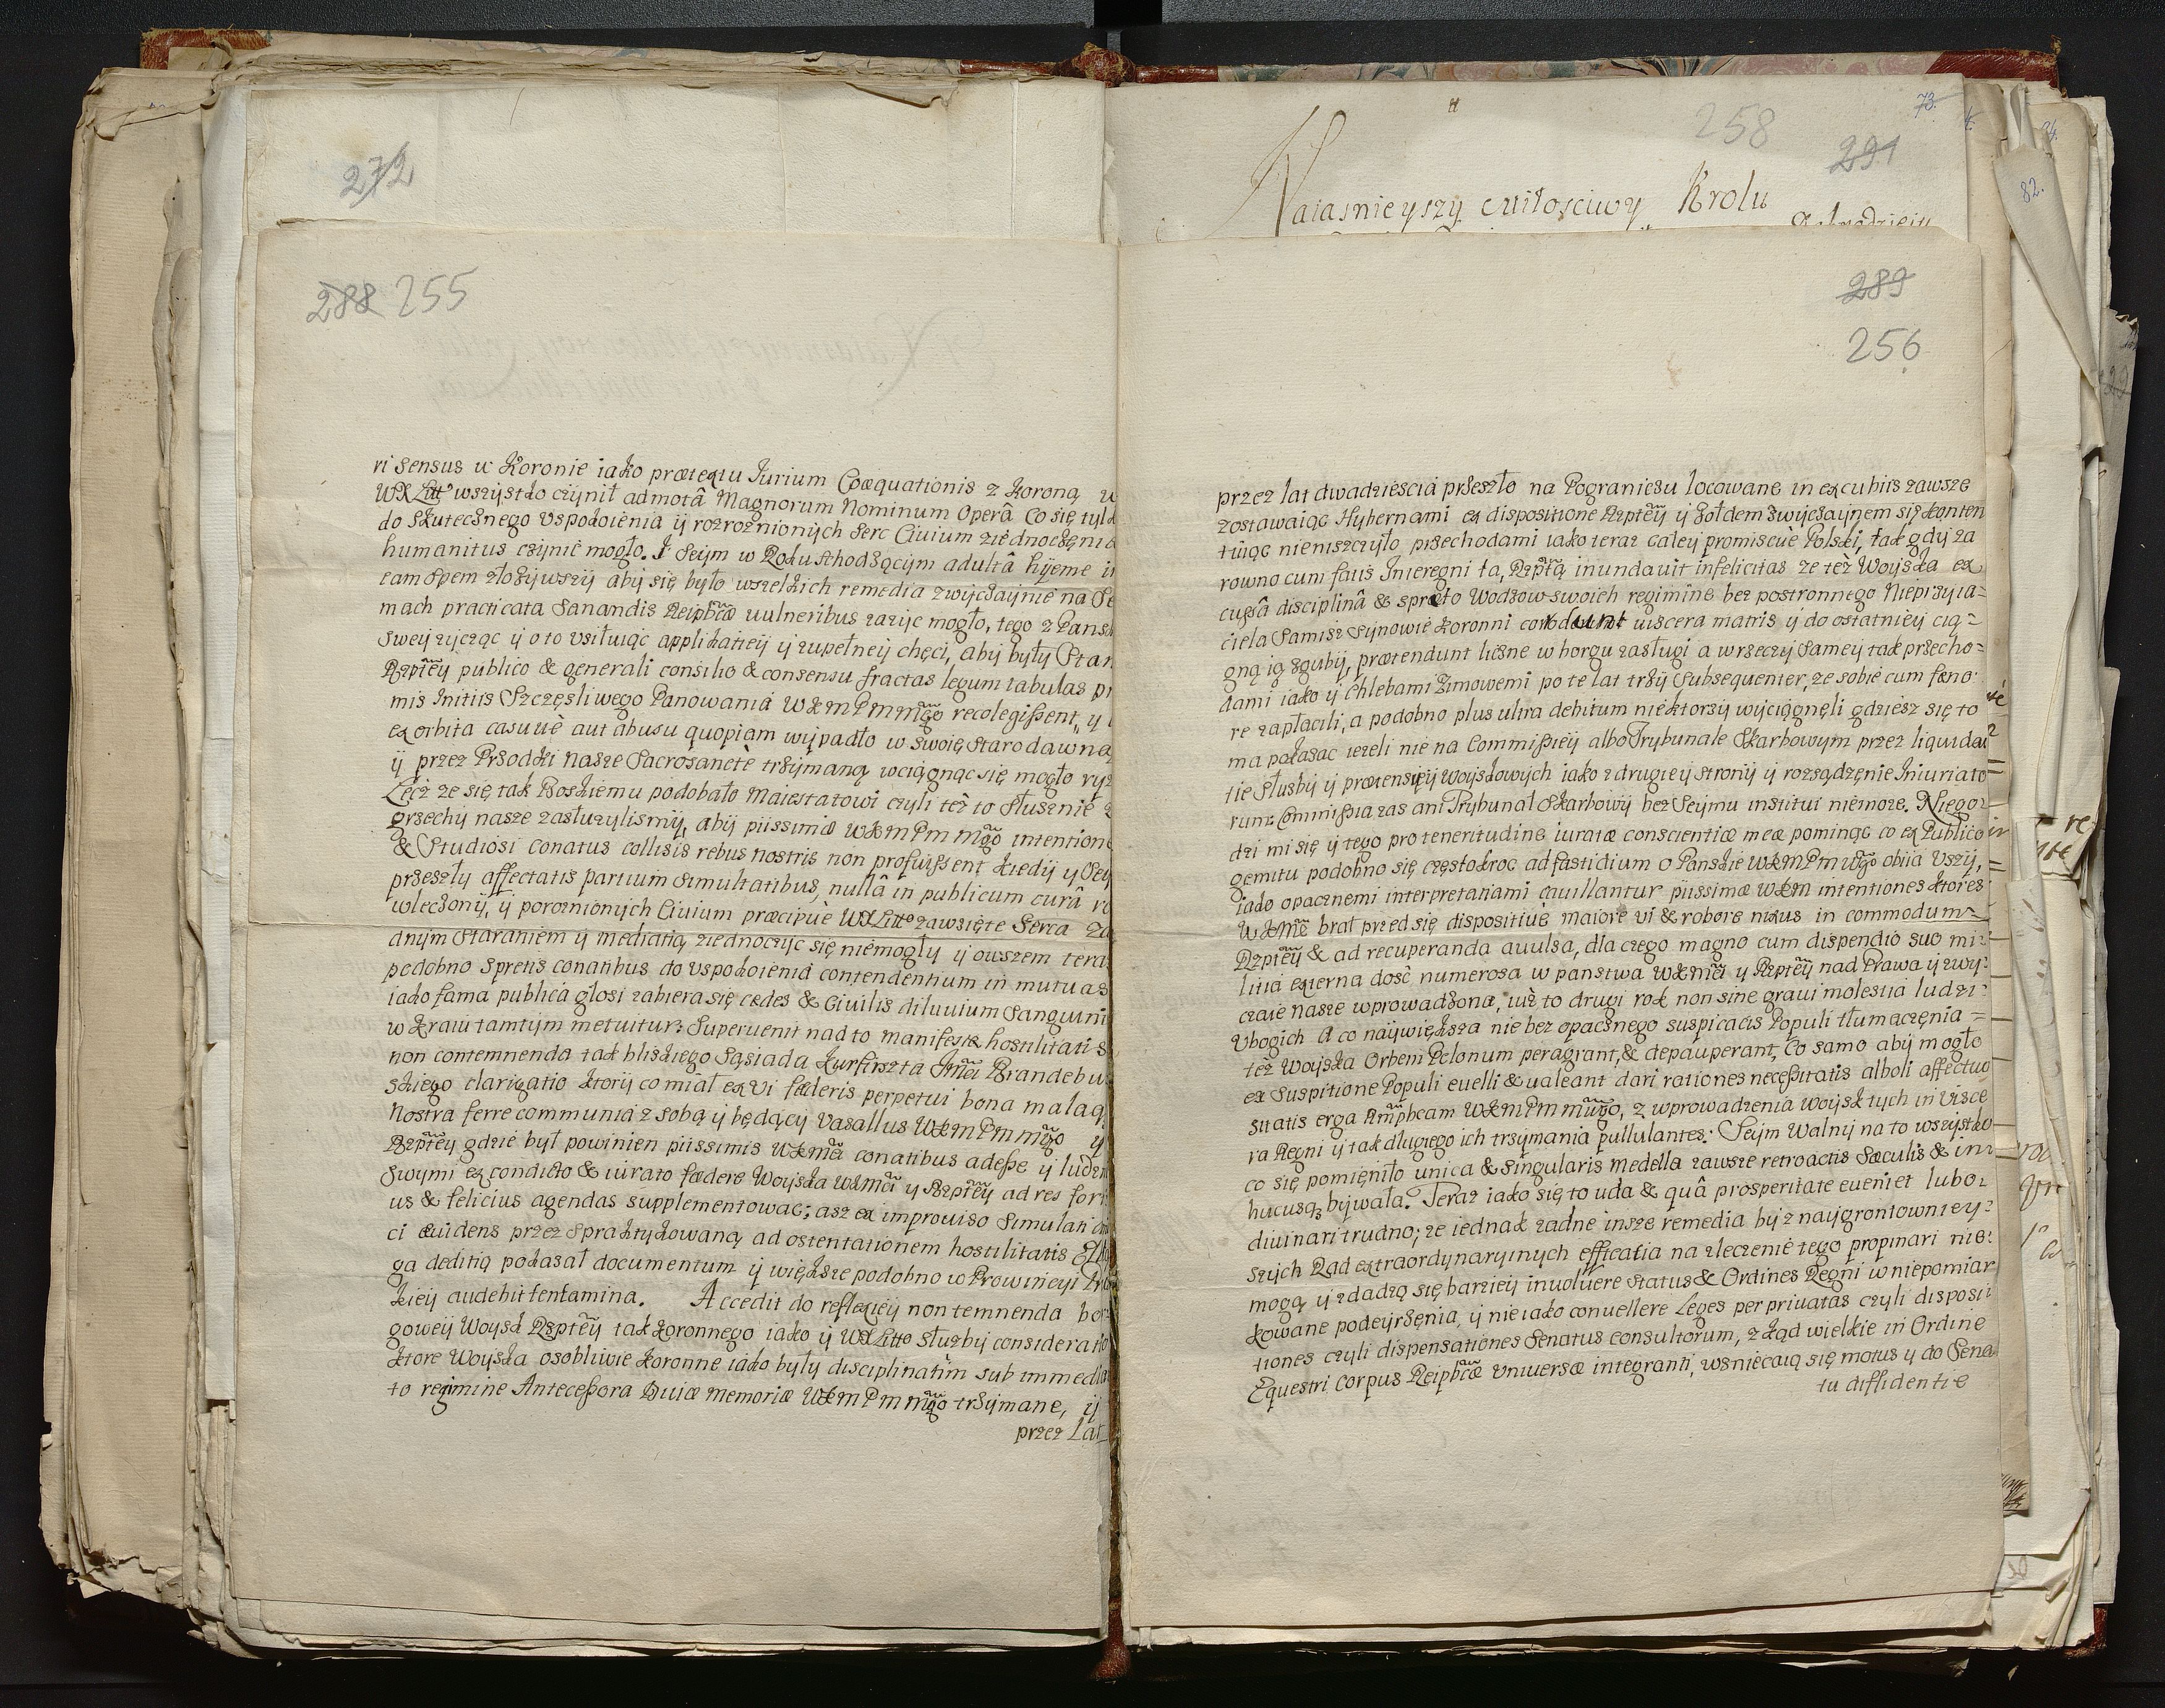 272
288 255
ri sensus w Koronie iako prætextu Iurium Coæquationis z Koroną w
WXLitt wszystko czynił admotâ Magnorum Nominum Operâ Co się tylk
do skutecznego uspokoienia y rozroznionych serc Ciuium ziednoczęni
humanitus czynić mogło. I Seym w Roku schodzącym adultâ hyeme i
eam opem złożywszy aby się było wszelkich remedia zwyczaynie na Se
mach practicata Sanandis Reipbcæ uulneribus zażyc mogło, tego z Pansk
swey zycząc y o to usiłuiąc applikatiey y zupełney chęci, aby były Stan
Rzptey publico & generali consilio & consensu fractas legum tabulas pr
mis Initiis Szczęsliwego Panowania WKmPmmgo recolegissent, y
ex orbita casu uè aut abusu quopiam wypadło w swoię starodawną
y przez Przodki nasze Sacrosanctè trzymaną wciągnąc się mogło ryz
Lecz ze się tak Boskiemu podobało Maiestatowi czyli też to słusznie
grzechy nasze zasłuzylismy, aby piissimæ WKmPmmgo intention
& Studiosi Conatus collisis rebus nostris non profuissent kiedy y Sey
przeszły affectatis partium simultatibus, nullâ in publicum curâ ro
wleczony, y poroznionych Ciuium præcipuè WXLitto zawzięte Serca Za
dnym staraniem y mediatią ziednoczyc się niemogły y owszem tera
podobno spretis conatibus do uspokoienia contendentium in mutuas
iako fama publica głosi zabiera się cædes & Ciuilis diluuium Sanguini
w kraiu tamtym metuitur. Superuenit nad to manifestæ hostilitatis
non contemnenda tak bliskiego Sąsiada Kurfirszta Jmci Brandebu
skiego clarigatio ktory co miał ex vi fæderis perpetui bona malaq
nostra ferre communia z sobą y będący Vasallus WKmPmmgo y
Rzptey gdzie był powinien piissimis WKmci conatibus adesse y ludzm
swymi ex condicto & iurato fædere Woyska WKmci y Rzptey ad res forti
us & felicius agendas supplementowac; asz ex improuiso simulati ani
ci euidens przez sprakty kowaną ad ostentationem hostilitatis Elbl
ga deditią pokasał documentum y większe podobno w Prowincyi Pr
kiey audebit tentamina. Accedit do reflexiey non temnenda bor
gowey Woysk Rzptey tak koronnego iako y WXLitto słuzby consideratio
ktore Woyska osobliwie koronne iako były disciplinatim sub immedia
to regimine Antecessora Diuæ memoriæ WKmPmmgo trzymane, y
przez Lat
73.
258
291
Naiasnieyszy Miłosciwy Krolu
82.
289
256
przez lat dwadziescia przeszło na Pograniczu locowane in excubiis zawsze
zostawaiąc Hybernami ex dispositione Rzptey y żołdem zwyczaynem się konten
tuiąc nieniszczyło przechodami iako teraz całey promiscue Polski, tak gdy za
rowno cum fatis Interegni ta, Rzptą inundauit infelicitas ze też Woyska ex
cussâ disciplinâ & spreto Wodzow swoich regimine bez postronnego Nieprzyia=
ciela Samisz Synowie koronni conduunt uiscera matris y do ostatniey cią=
gną ią zguby, prætendunt liczne w borgu zasługi a w rzeczy samey tak przecho=
dami iako y Chlebami Zimowemi po te lat trzy subsequenter, ze sobie cum fæno:
re zapłacili, a podobno plus ultra debitum niektorzy wyciągnęli gdziesz się to
ma pokasac iezeli nie na Commissiey albo Trybunale Skarbowym przez liquida
tie słuzby y prætensyy woyskowych iako z drugiey strony y rozsądzęnie Iniuriato
rum: Commissia zas ani Trybunał Skarbowy bez Seymu institui niemoze. Niego=
dzi mi się y tego pro teneritudine iuratæ conscientiæ meæ pominąc co ex Publico
gemitu podobno się częstokroc ad fastidium o Panskie WKmPmmgo obiia Uszy,
iako opacznemi interpretatiami cauillantur piissimæ WKm intentiones ktores
WKmć brał przed się dispositiue maiore vi & robore nixus in commodum
Rzptey & ad recuperanda auulsa, dla czego magno cum dispendio suo mi=
litia externa dosć numerosa w panstwa WKmci y Rzptey nad Prawa y zwy=
czaie nasze wprowadzona, iuż to drugi rok non sine graui molestia ludzi
Ubogich A co naywiększa nie bez opacznego suspicacis Populi tłumaczęnia =
też Woyska Orbem Polonum peragrant, & depauperant, Co samo aby mogło
ex suspitione Populi euelli & ualeant dari rationes necessitatis alboli affectuo
sitatis erga Rmpbcam WKmPmmgo, z wprowadzenia woysk tych in Visce
ra Regni y tak długiego ich trzymania pullulantes: Seym Walny na to wszystko
co się pomięniło unica & singularis medella zawsze retroactis sæculis &
hucusq; bywała. Teraz iako się to uda & quâ prosperitate eueniet lubo=
diuinari trudno; ze iednak zadne insze remedia by z naygrontowniey=
szych Rad extraordynaryinych efficatia na zleczenie tego propinari nie=
mogą y zdadzą się barziey inuoluere status & Ordines Regni w niepomiar
kowane podeyrzęnia, y nie iako conuellere Leges per priuatas czyli disposi=
tiones czyli dispensationes Senatus consultorum, z kąd wielkie in Ordine
Equestri Corpus Reipbcæ Vniuersæ integranti, wsniecaią się motus y do Sena
tu diffidentie